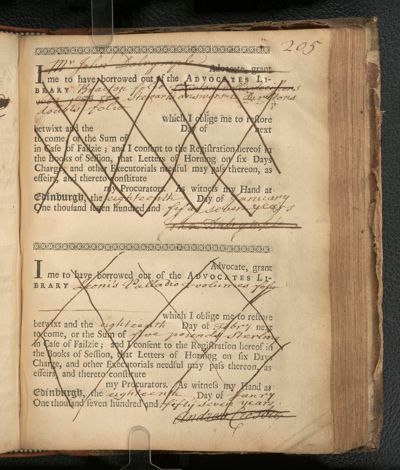 205
I Mr John Dalrymple Advocate, grant
me to have borrowed out of the ADVOCATES LI-
BRARY
Stewart answered Dirletons
doubts folio
which I oblige me to restore
betwixt and the Day of next
to come, or the Sum of
in Case of Failzie; and I consent to the Registration hereof in
the Books of Session, that Letters of Horning on six Days
Charge, and other Executorials needful may pass thereon, as
effeirs, and thereto constitute
my Procurators. As witness my Hand at
Edinburgh, the eighteenth Day of January
One thousand seven hundred and fifty seven years
John Dalrymple
I Advocate, grant
me to have borrowed out of the ADVOCATES LI-
BRARY Leoni's Palladio 2 volumes folio
which I oblige me to restore
betwixt and the eighteenth Day of Febry next
to come, or the Sum of five pounds Sterling
in Case of Failzie; and I consent to the Registration hereof in
the Books of Session, that Letters of Horning on six Days
Charge, and other Executorials needful may pass thereon, as
effeirs, and thereto constitute
my Procurators. As witness my Hand at
Edinburgh, the eighteenth Day of Janry
One thousand seven hundred and fifty seven years.
Andrew Crosbie